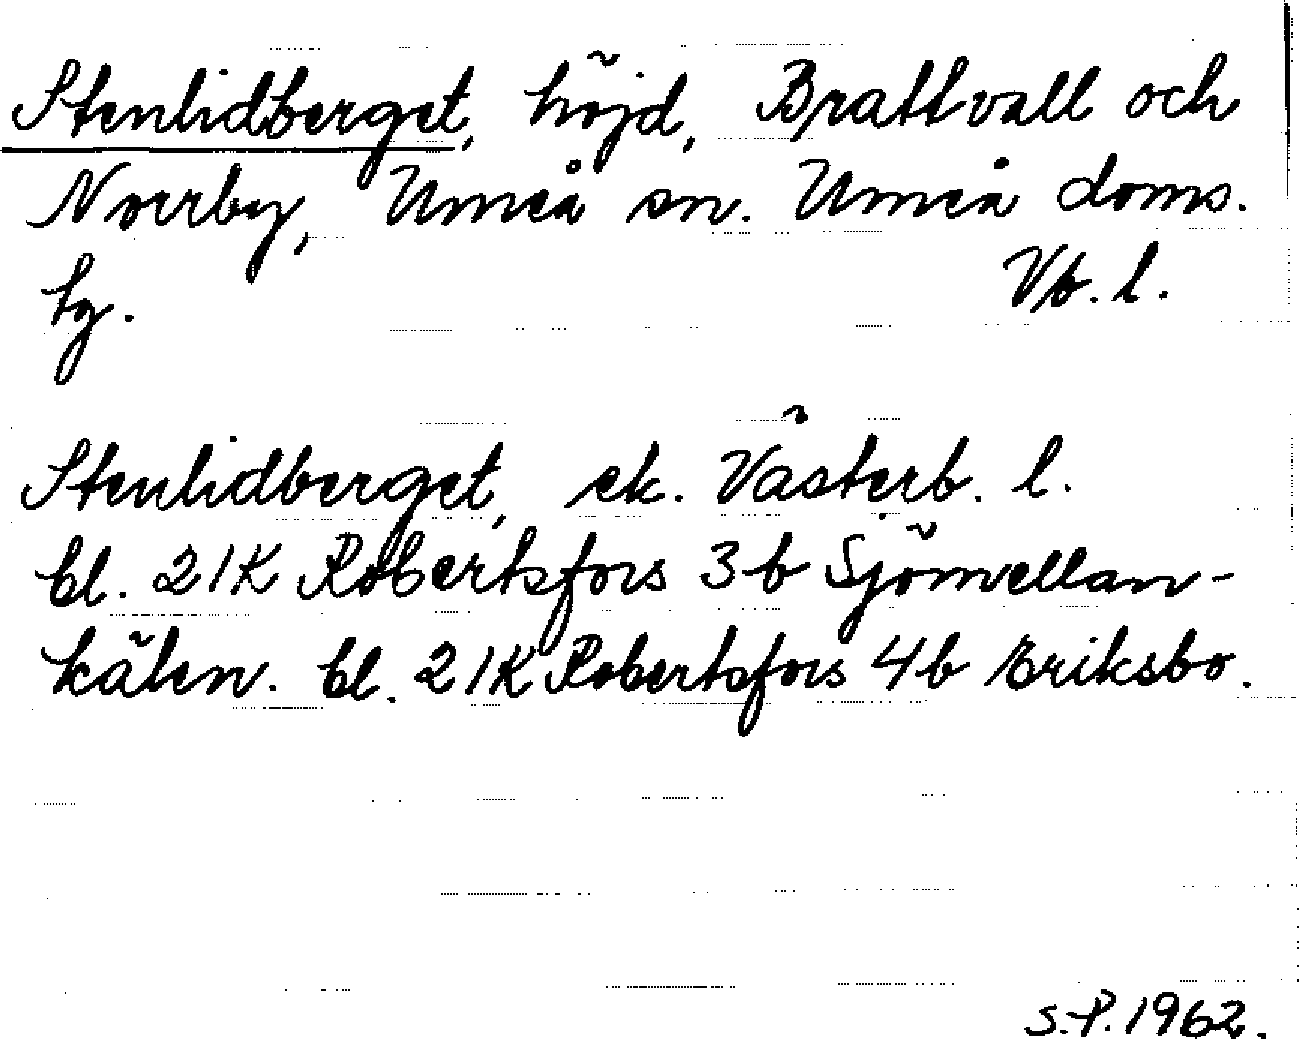 Stenlidberget, höjd, Brattvall och
Norrby, Umeå sn. Umeå doms.
hg. Vb. l.
Stenlidberget, ek. Västerb. l.
bl. 21K Robertsfors 3b Sjömellan-
kälen. bl. 21K Robertsfors 4b Eriksbo.
S.P. 1962.